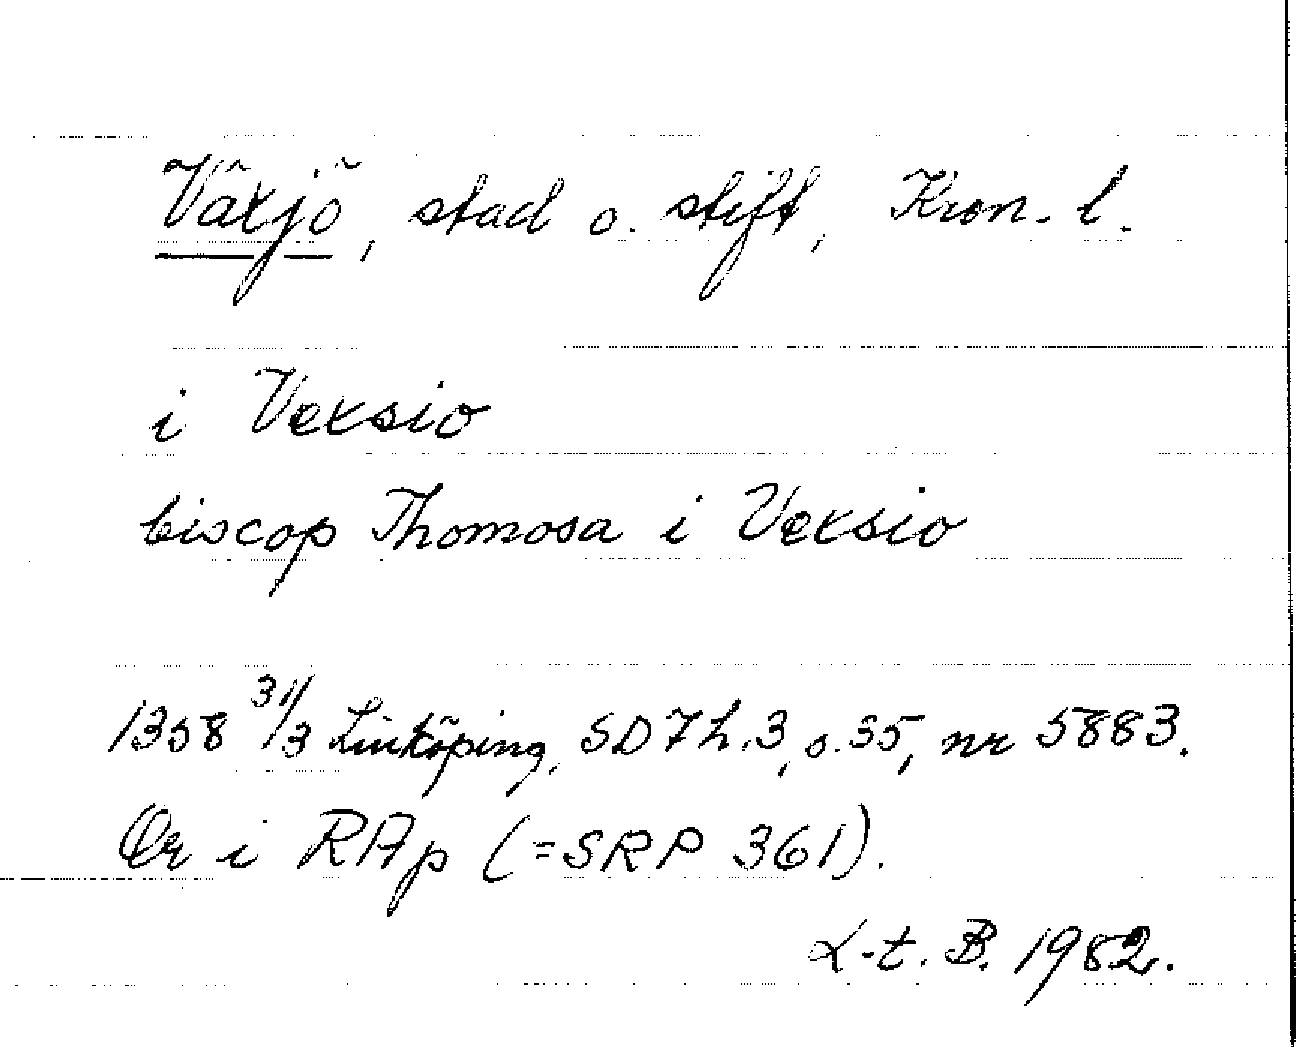 Växjö, stad o. stift, Kron. l.
i Vexsio
biscop Thomosa i Vexsio
1358 31/3 Linköping, SD 7 h. 3, s. 35, nr 5883.
Or i RAp (=SRP 361).
L-t. B. 1982.